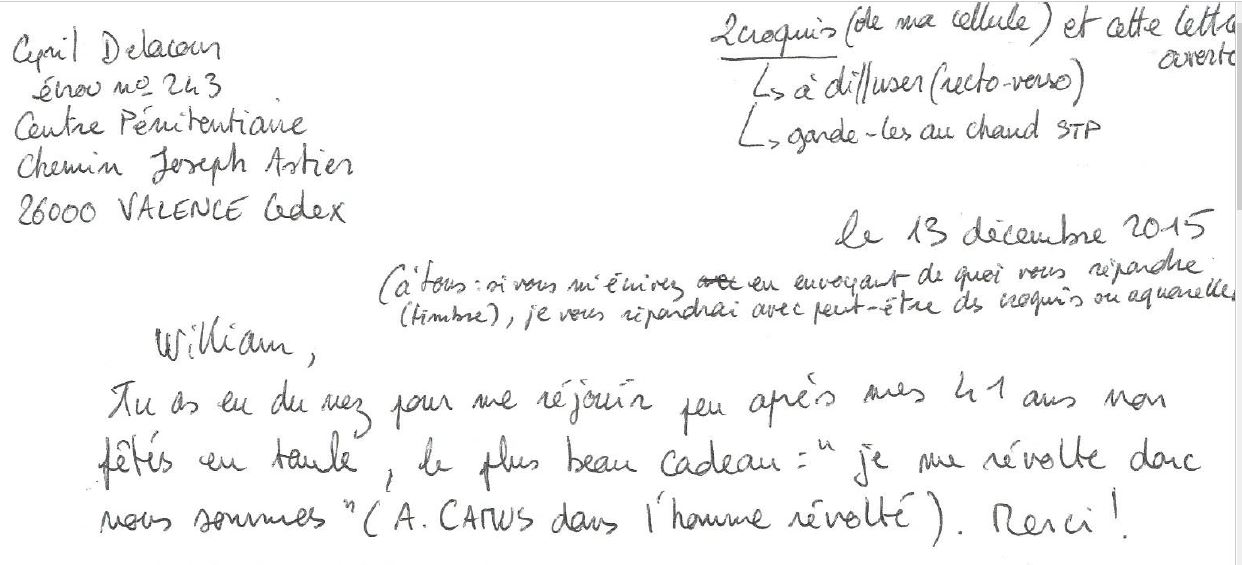 Cyril Delacour
écrou nº 243
Centre Pénitentiaire
Chemin Joseph Astier
26000 VALENCE Cedex
2 croquis (de ma cellule) et cette lettre
ouverte
↳ à diffuser (recto-verso)
↳ garde-les au chaud STP
le 13 décembre 2015
(à tous : si vous m'écrivez en envoyant de quoi vous répondre
(timbre), je vous répondrai avec peut-être des croquis ou aquarelles
William,
Tu as eu du nez pour me réjouir peu après mes 41 ans non
fêtés en taule, le plus beau cadeau : "je me révolte donc
nous sommes" (A. CAMUS dans l'homme révolté). Merci !